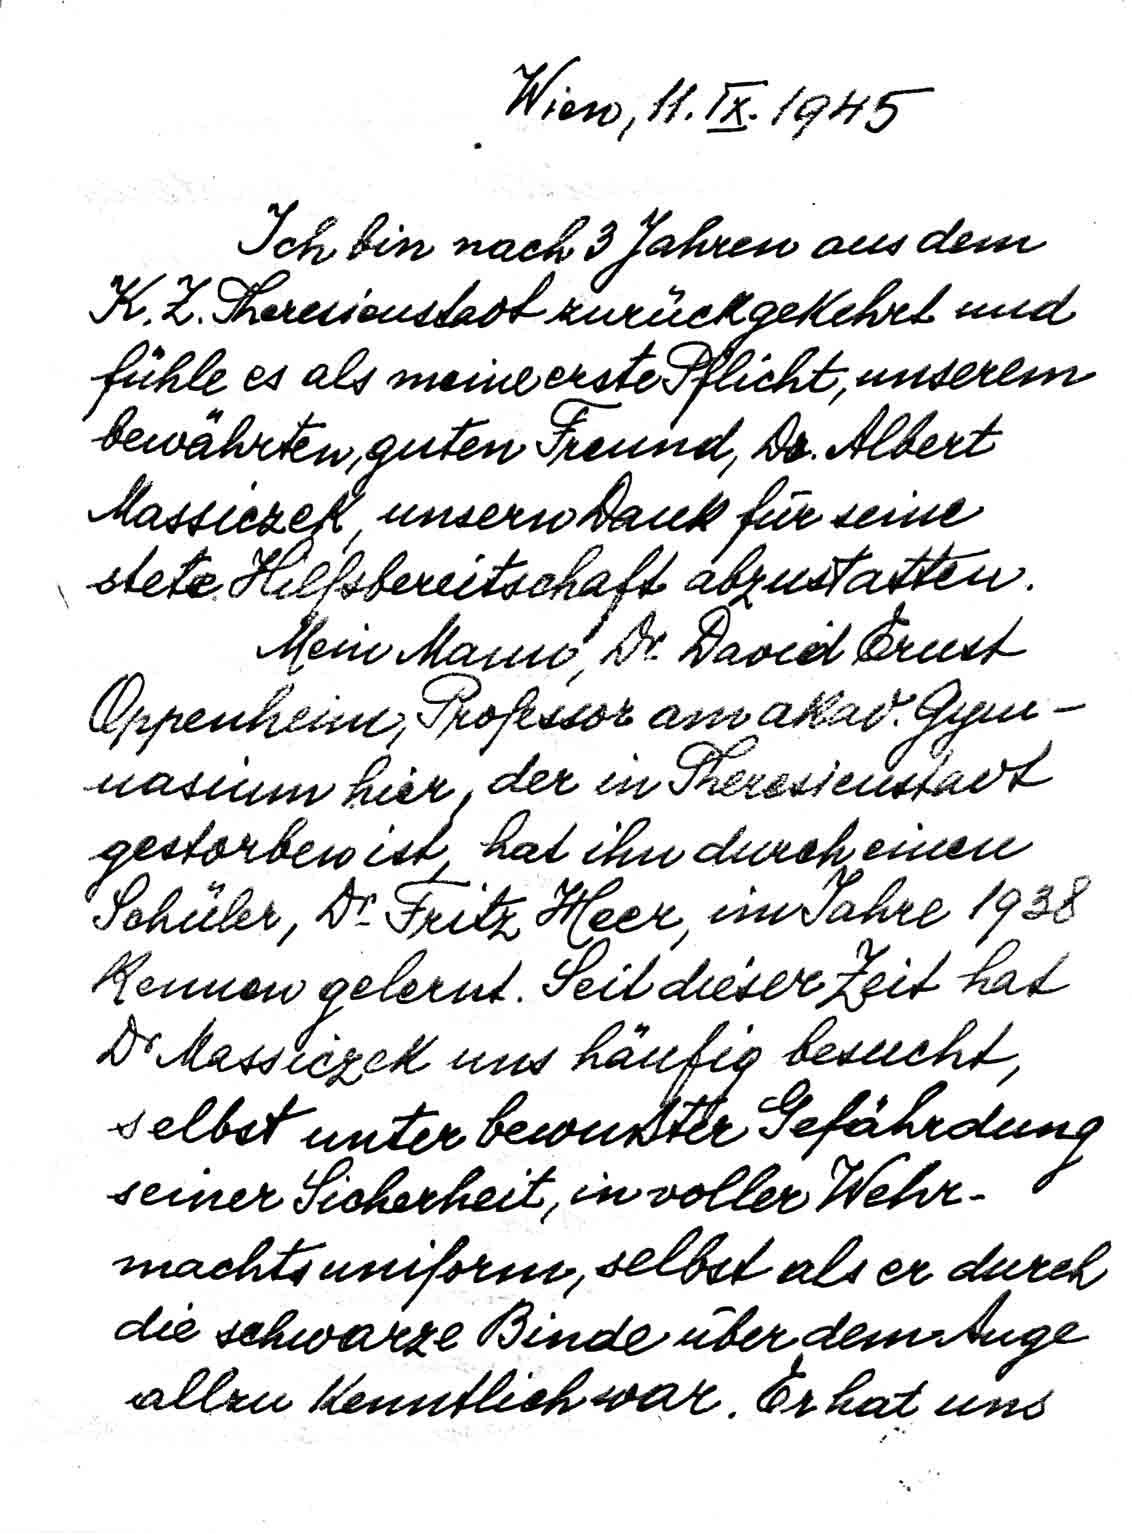 Wien, 11. IX. 1945
Ich bin nach 3 Jahren aus dem
K. Z. Theresienstadt zurückgekehrt und
fühle es als meine erste Pflicht, unserem
bewährten, guten Freund, Dr. Albert
Massiczek, unsern Dank für seine
stete Hilfsbereitschaft abzustatten.
Mein Mann, Dr. David Ernst
Oppenheim, Professor am akad. Gym-
nasium hier, der in Theresienstadt
gestorben ist, hat ihn durch einen
Schüler, Dr. Fritz Heer, im Jahre 1938
kennen gelernt. Seit dieser Zeit hat
Dr Massiczek uns häufig besucht,
selbst unter bewußter Gefährdung
seiner Sicherheit, in voller Wehr-
machtsuniform, selbst als er durch
die schwarze Binde über dem Auge
allzu kenntlich war. Er hat uns